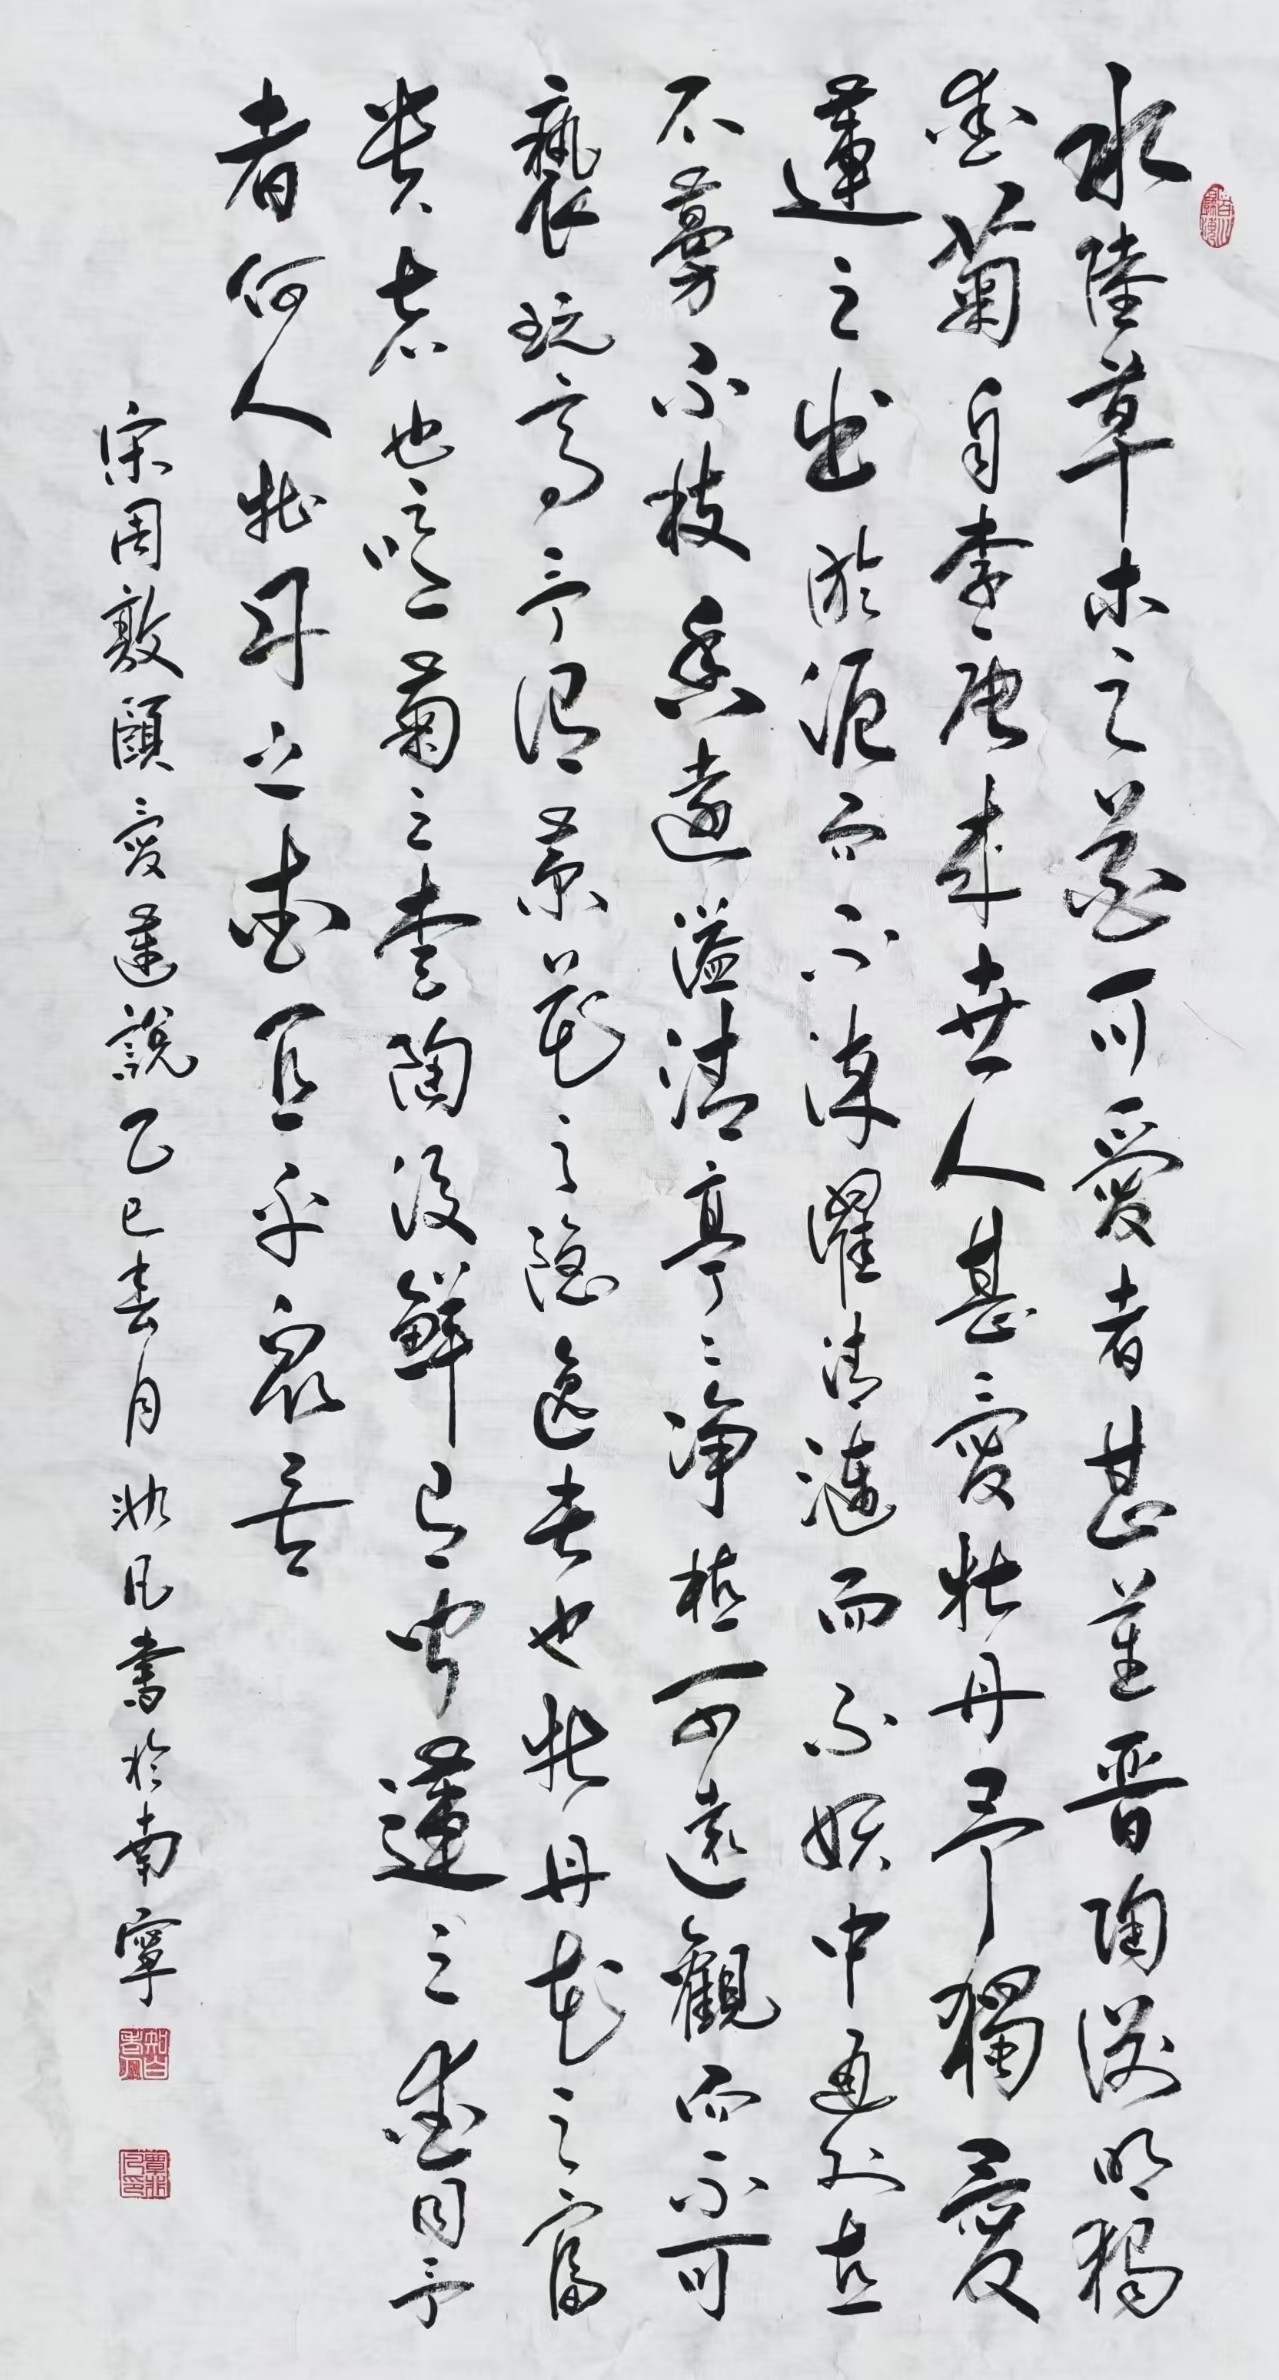 水陸草木之花可愛者甚蕃晉陶淵明獨
愛菊自李唐來世人甚愛牡丹予獨愛
蓮之出淤泥而不染濯清漣而不妖中通外直
不蔓不枝香遠溢清亭亭淨植可遠觀而不可
褻玩焉予謂菊花之隱逸者也牡丹花之富
貴者也噫菊之愛陶後鮮有聞蓮之愛同予
者何人牡丹之愛宜乎衆矣
宋周敦頤愛蓮說乙巳春月凡書於南寧
知白守黑